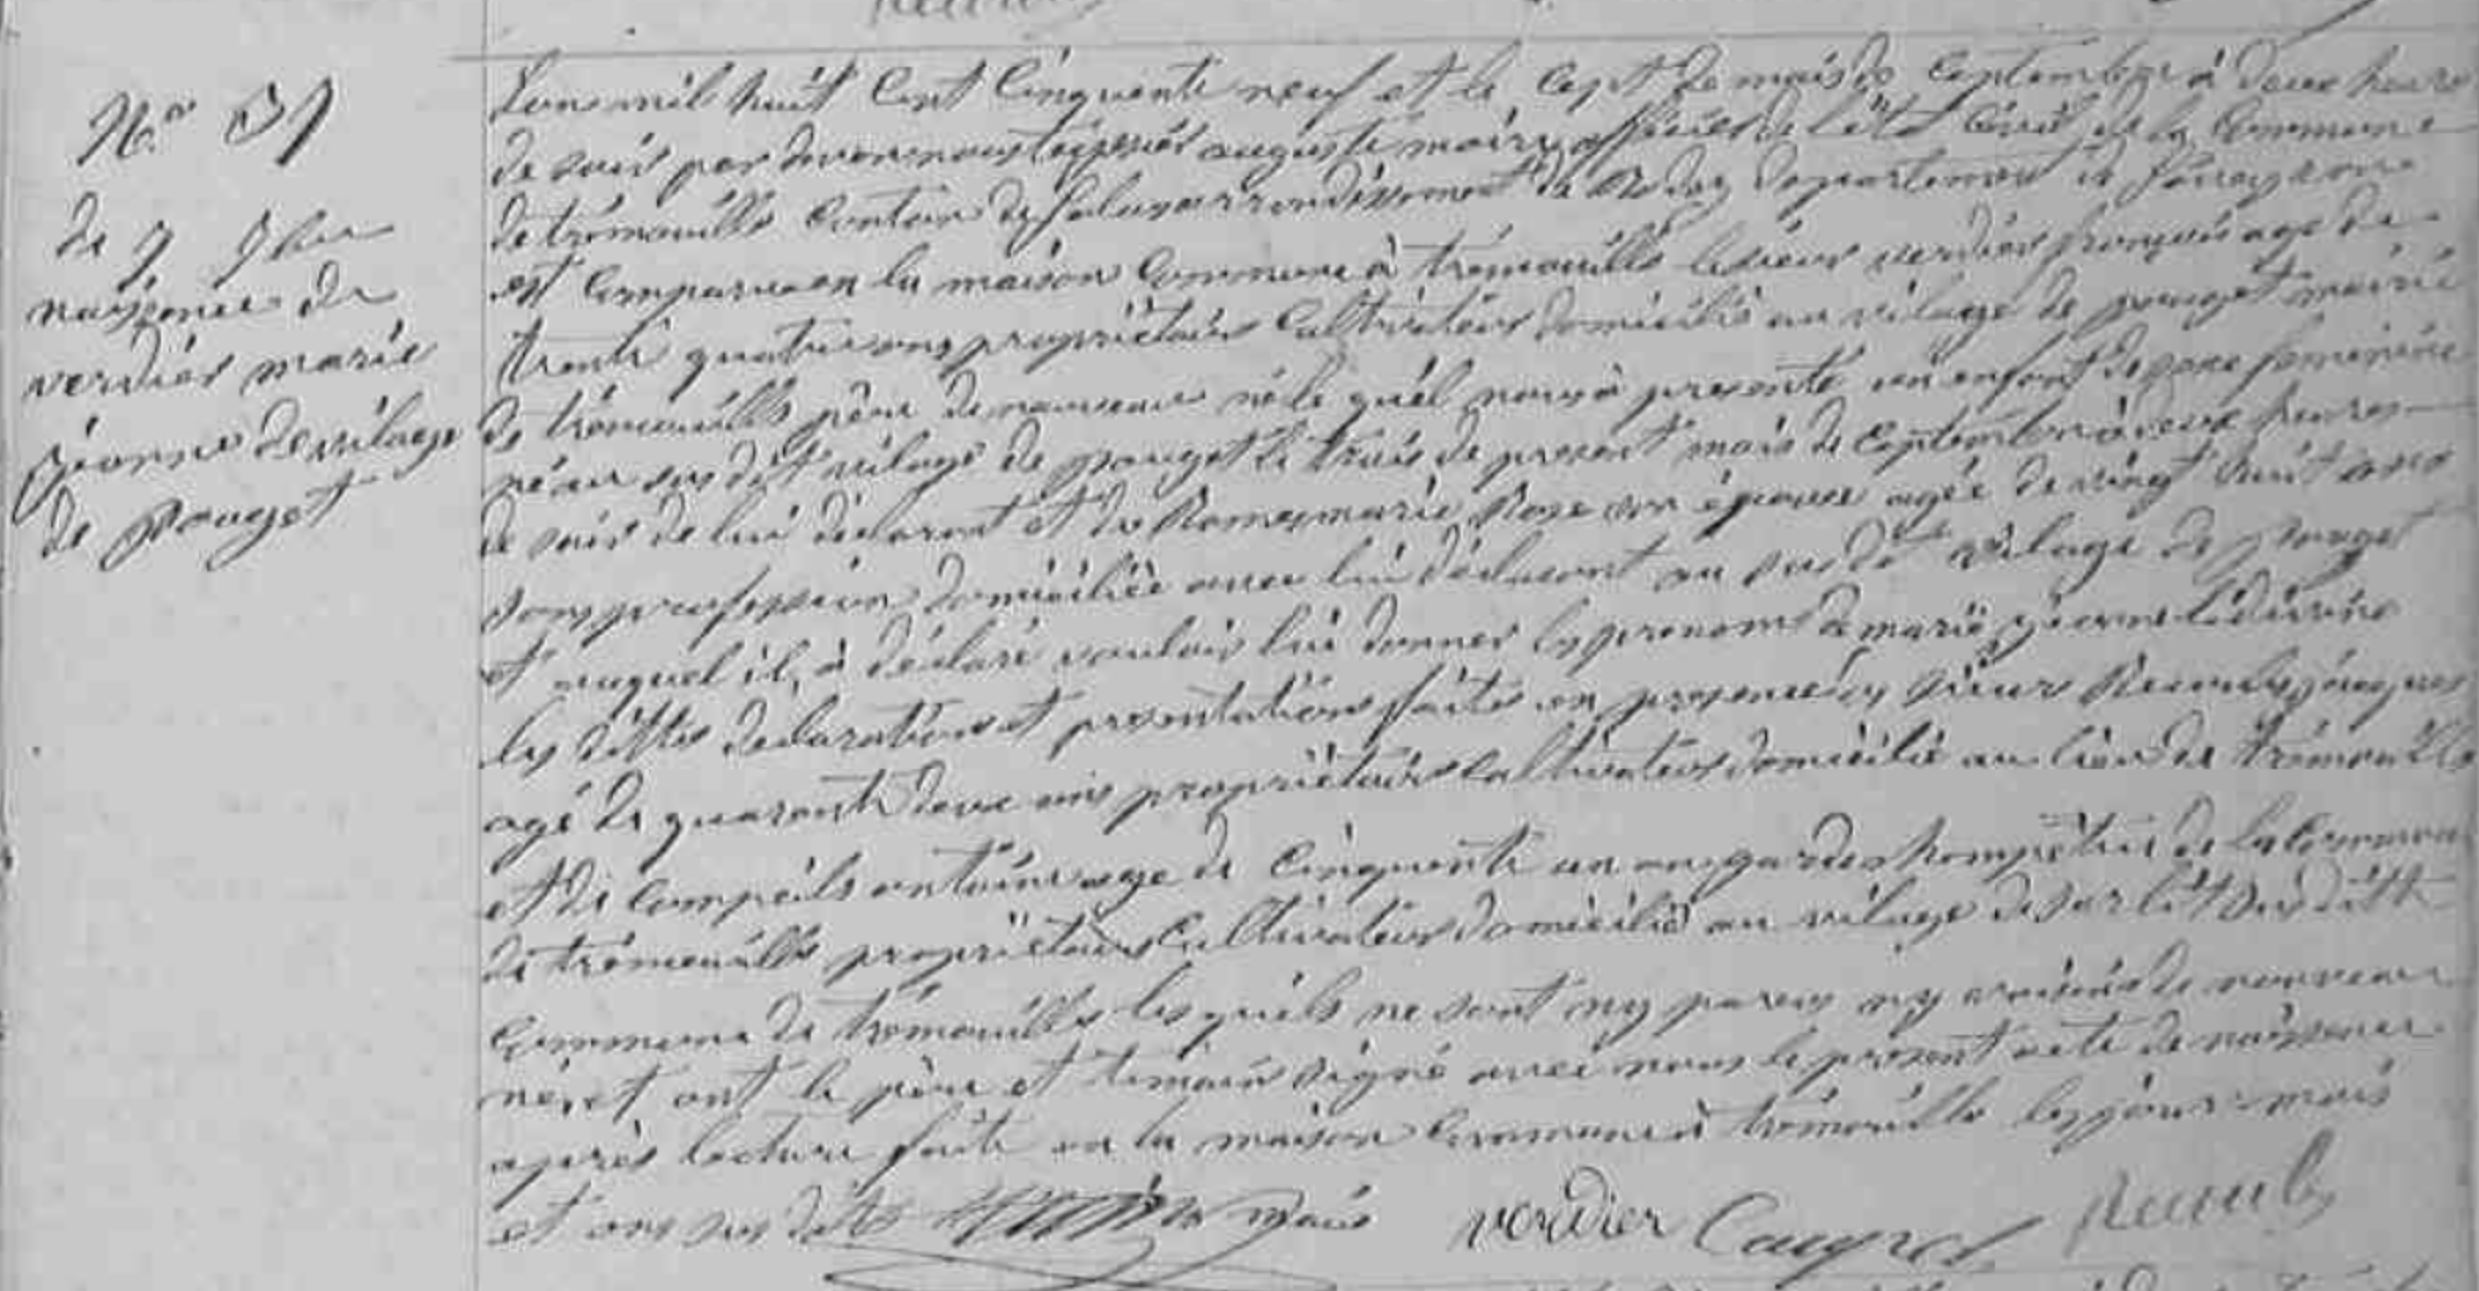 N.o 31
de 7 7bre
naissance de
verdier marie
jéanne de vilage
de Pouget
L'an mil huit Cent Cinquante neuf et le Cept de mois de Ceptembre à deux heures
de soir par devant nous auguste maire officier de l'état Civil de la Commune
de trémouille Canton de Salars arrondissement de Rodez departement de
est Comparu en la maison Commune à trémouille le sieur verdier françois age de
trente quatre ans propriétaire Cultivateur domicilié au vilage de pouget mairie
de trémouille père de nouveau né le quél nous à presenté un enfant de sexe feminine
né au sus dit vilage de pouget le trois de present mois de Ceptembre à deux heures
de soir de lui déclarant et de marie Rose son épouse agée de vingt huit ans
sans profession domiciliée avec lui déclarant au susdit vilage de pouget
et auquel il à déclaré vouloir lui donner les prenoms de marie jéanne
les dittes déclaration et presentations faites en presence les sieurs jacques
agé de quarante deux ans propriétaire Cultivateur domicilié au lieu de trémouille
et de antoine age de Cinquante un ans garde champetre de la Commune
de trémouille propriétaire Cultivateur domicilié au vilage de sus ditte
Commune de trémouille les quéls ne sont ny parens ny voisins de nouveau
né, et ont le père et temoins signé avec nous le present acte de naissance
après lecture faite en la maison Commune à trémouille les jour mois
et ans sus dits
verdier